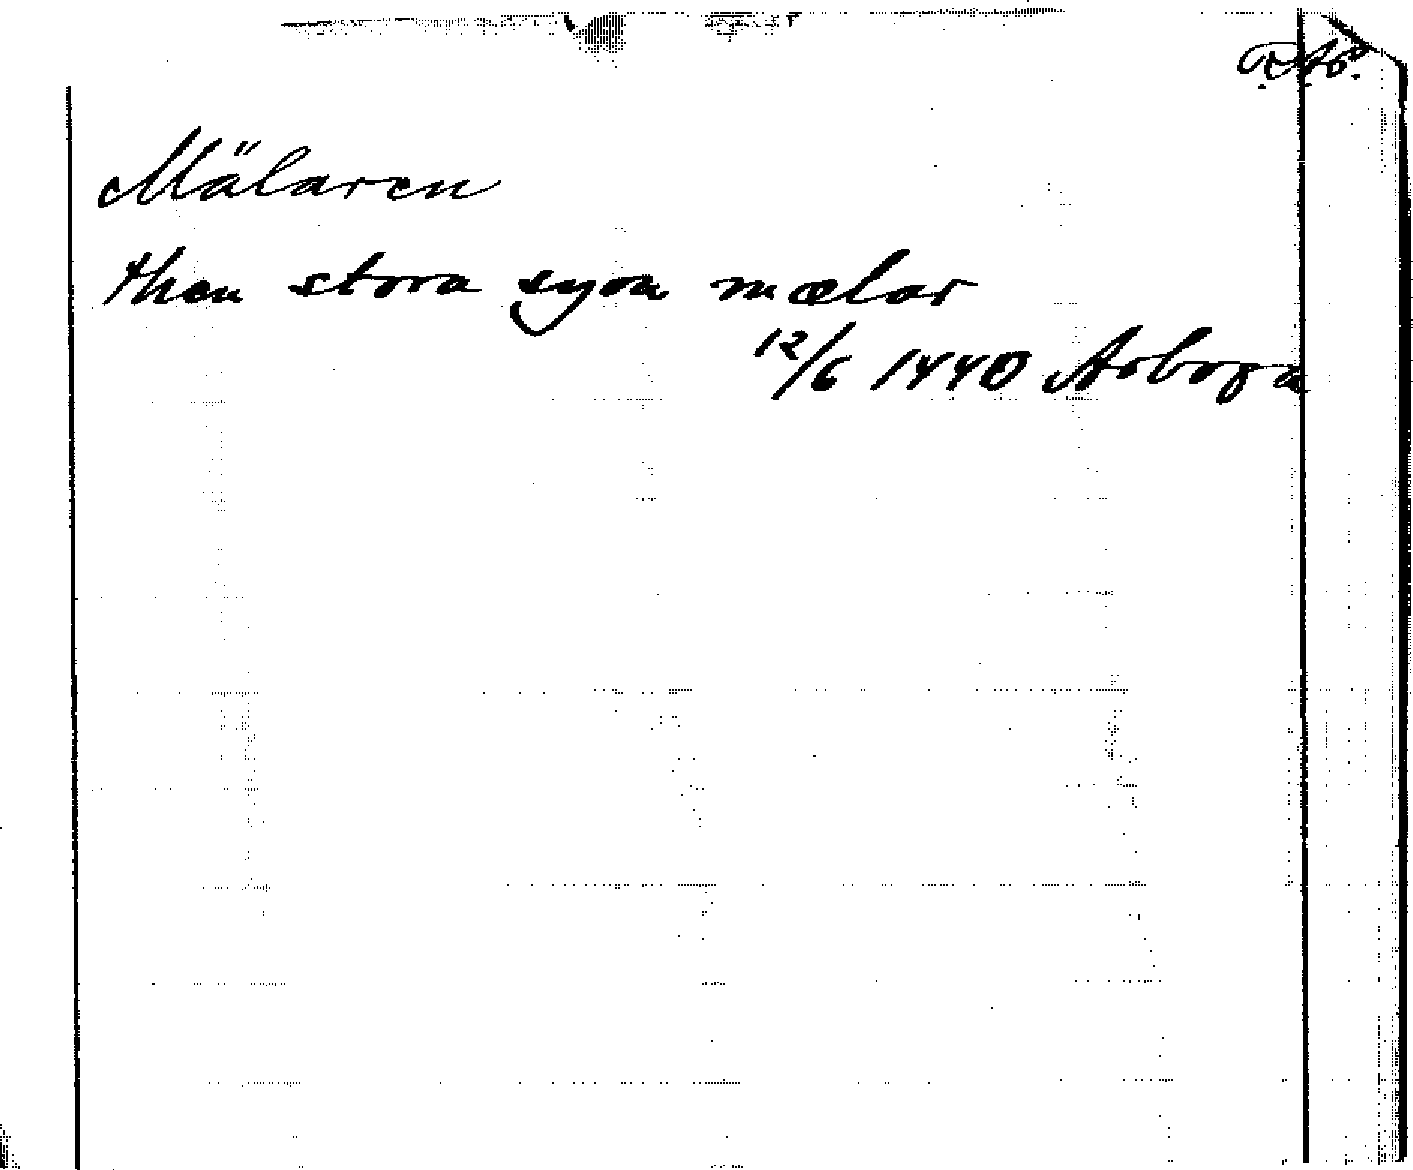 Mälaren
then stora syon mælar
12/6 1440 Arboga